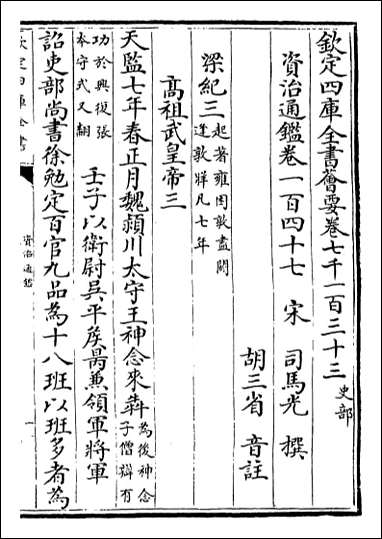 欽定四庫全書薈要卷七千一百三十三 史部
資治通鑑卷一百四十七 宋 司馬光 撰
胡三省 音註
梁紀三 起著雍困敦盡閼逢敦牂凡七年
髙祖武皇帝三
天監七年春正月魏潁川太守王神念來犇 為後神念子僧辯有
功於興復張本守式又翻 壬子以衛尉吳平矦昺兼領軍將軍
詔吏部尚書徐勉定百官九品為十八班以班多者為
欽定四庫全書
資治通鑑
一